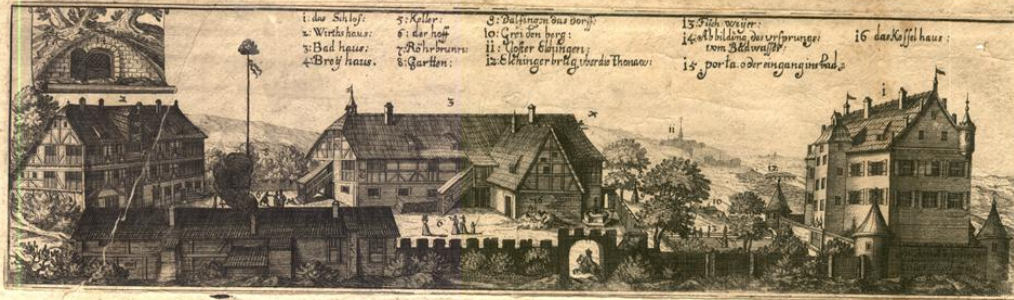 1: das Schlos:
2: Wirthshaus:
3: Bad haus:
4: Breÿ haus.
5: Keller:
6: der hoff
7: Röhrbrunn:
8: Gartten:
9: Dalfingen das dorff:
10: Grei den berg:
11: Closter Elchingen:
12: Elchinger brug vber die Thonaw:
13: Fisch weÿer:
14: Abbildung des vrsprungs
vom Badwasser:
15 porta oder eingang ins bad.
16 das Kessel haus:
2
3
4
11
1
12
10
6
16